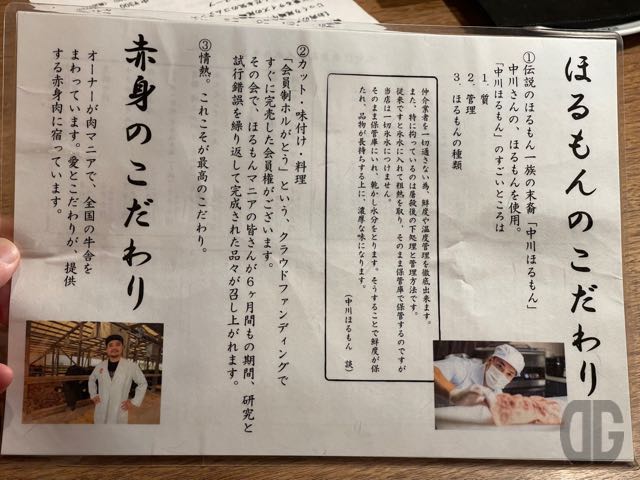 ほるもんのこだわり
①伝説のほるもん一族の末裔「中川ほるもん」
中川さんの、ほるもんを使用。
「中川ほるもん」のすごいところは
1. 質
2. 管理
3. ほるもんの種類
仲介業者を一切通さない為、鮮度や温度管理を徹底出来ます。
また、特に拘っているのは屠殺後の下処理と管理方法です。
従来ですと氷水に入れて粗熱を取り、そのまま保管庫で保管するのですが
当店は一切氷水につけません。
そのまま保管庫にいれ、乾かし水分をとります。そうすることで鮮度が保
たれ、品物が長持ちする上に、濃厚な味になります。
(中川ほるもん 談)
②カット・味付け・料理
「会員制ホルがとう」という、クラウドファンディングで
すぐに完売した会員権がございます。
その会で、ほるもんマニアの皆さんが6ヶ月間もの期間、研究と
試行錯誤を繰り返して完成された品々が召し上がれます。
③情熱。これこそが最高のこだわり。
赤身のこだわり
オーナーが肉マニアで、全国の牛舎を
まわっています。愛とこだわりが、提供
する赤身肉に宿っています。
DG